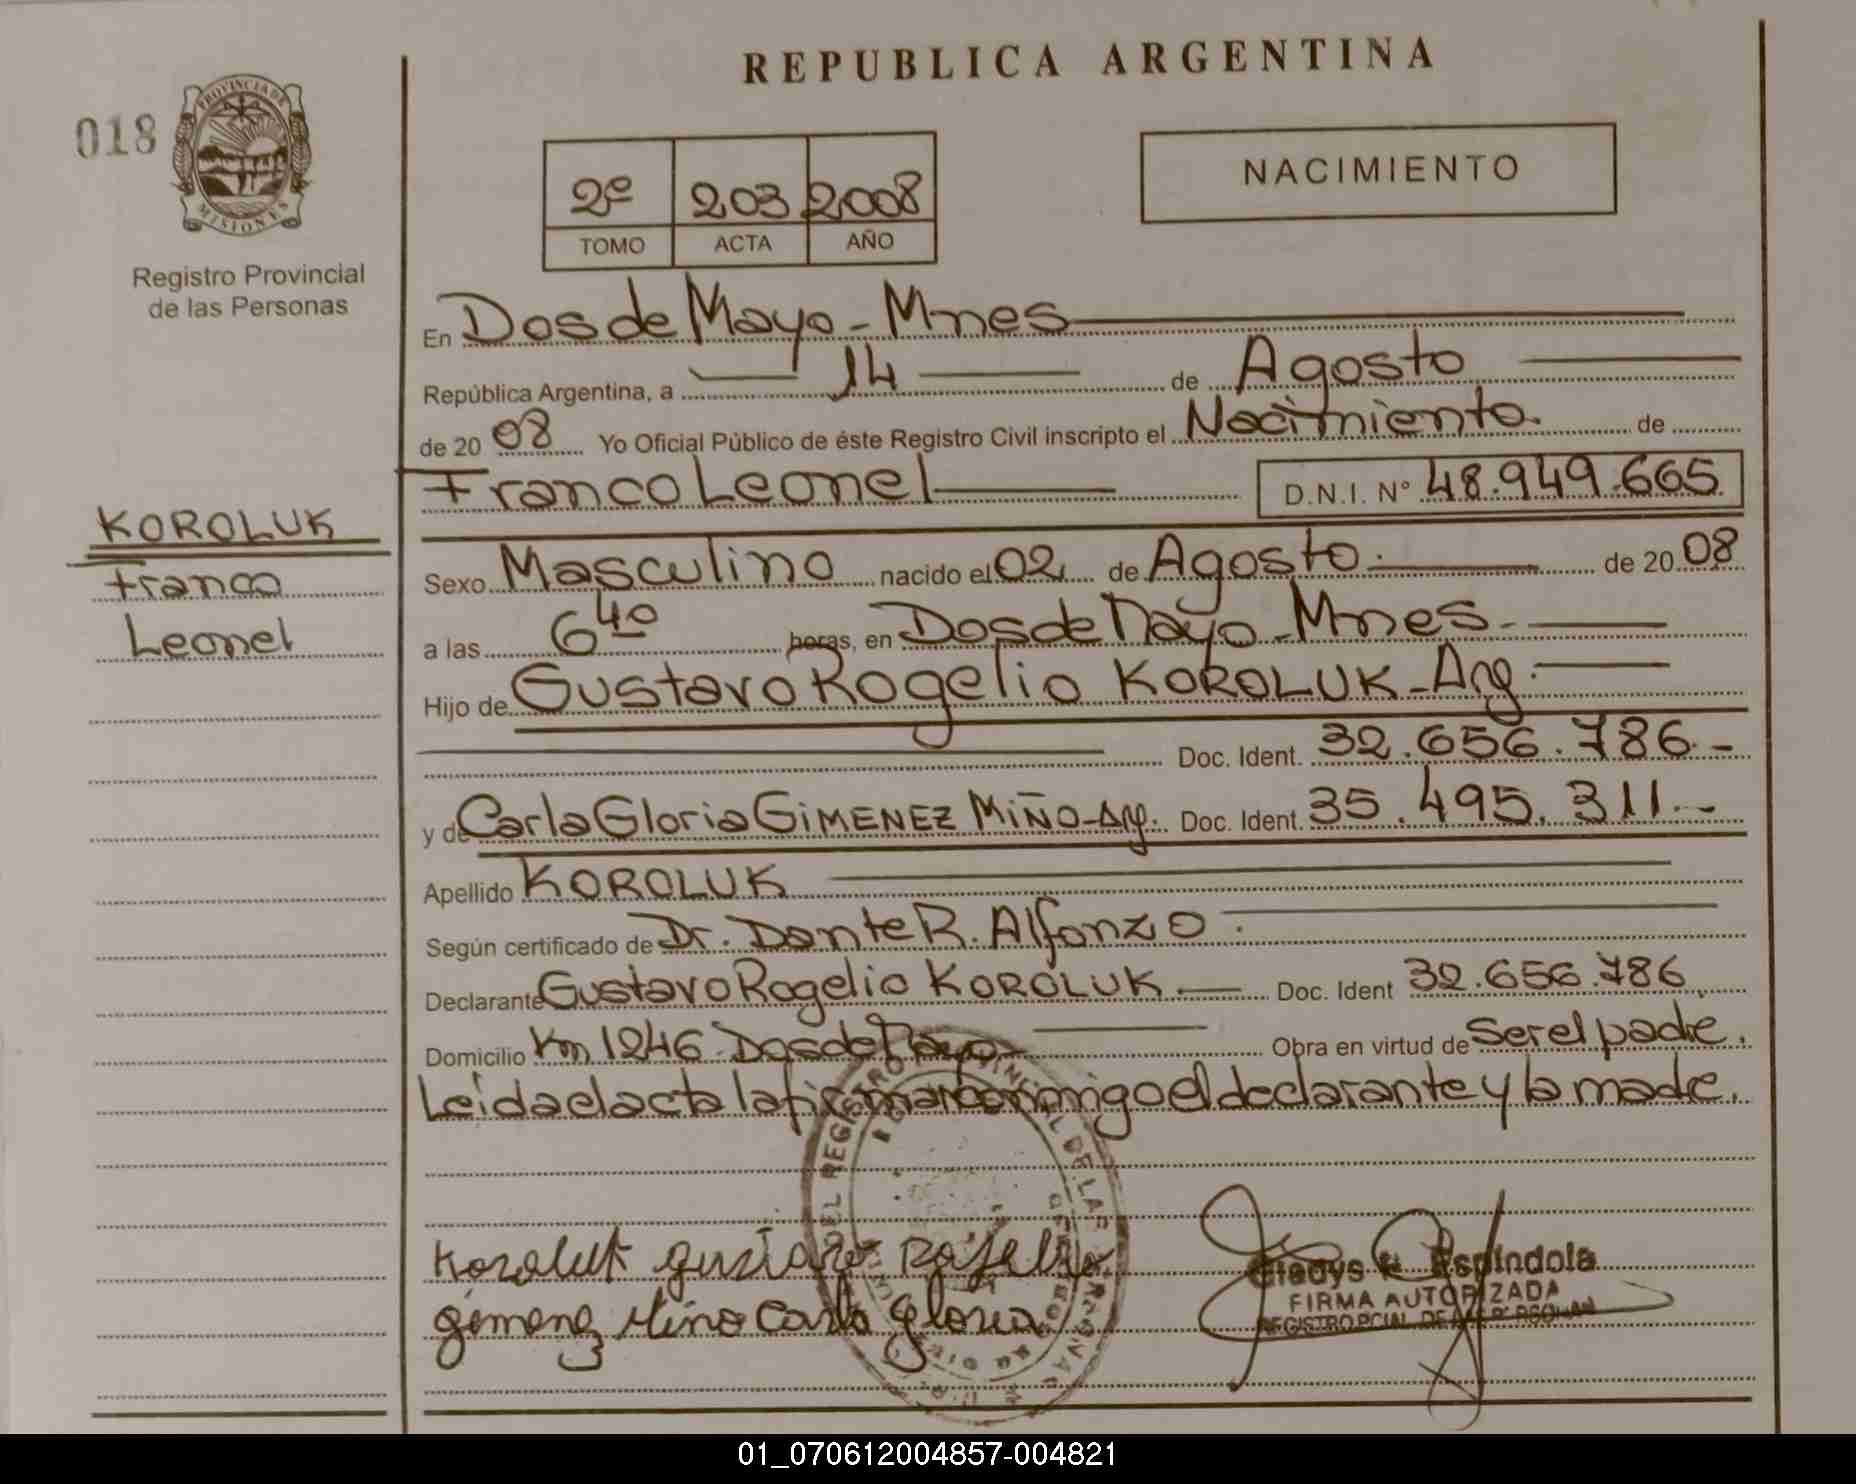 REPUBLICA ARGENTINA
018
PROVINCIA DE
MISIONES
Registro Provincial
de las Personas
2º 203 2008
TOMO ACTA AÑO
NACIMIENTO
En Dos de Mayo - Mnes
República Argentina, a 14 de Agosto
de 2008 Yo Oficial Público de éste Registro Civil inscripto el Nacimiento de
Franco Leonel D.N.I. Nº 48.949.665
KOROLUK
Franco
Leonel
Sexo Masculino nacido el 02 de Agosto de 2008
a las 6 40 horas, en Dos de Mayo - Mnes.
Hijo de Gustavo Rogelio KOROLUK - Arg.
Doc. Ident. 32.656.786.-
y de Carla Gloria GIMENEZ MIÑO - Arg. Doc. Ident. 35.495.311.-
Apellido KOROLUK
Según certificado de Dr. Dante R. Alfonzo.
Declarante Gustavo Rogelio KOROLUK Doc. Ident 32.656.786
Domicilio Km 1246 Dos de Mayo Obra en virtud de Ser el padre.
Leida el acta la firman conmigo el declarante y la madre.
Koroluk Gustavo Rogelio
Gimenez Miño Carla Gloria
Gladys Espindola
FIRMA AUTORIZADA
01_070612004857-004821